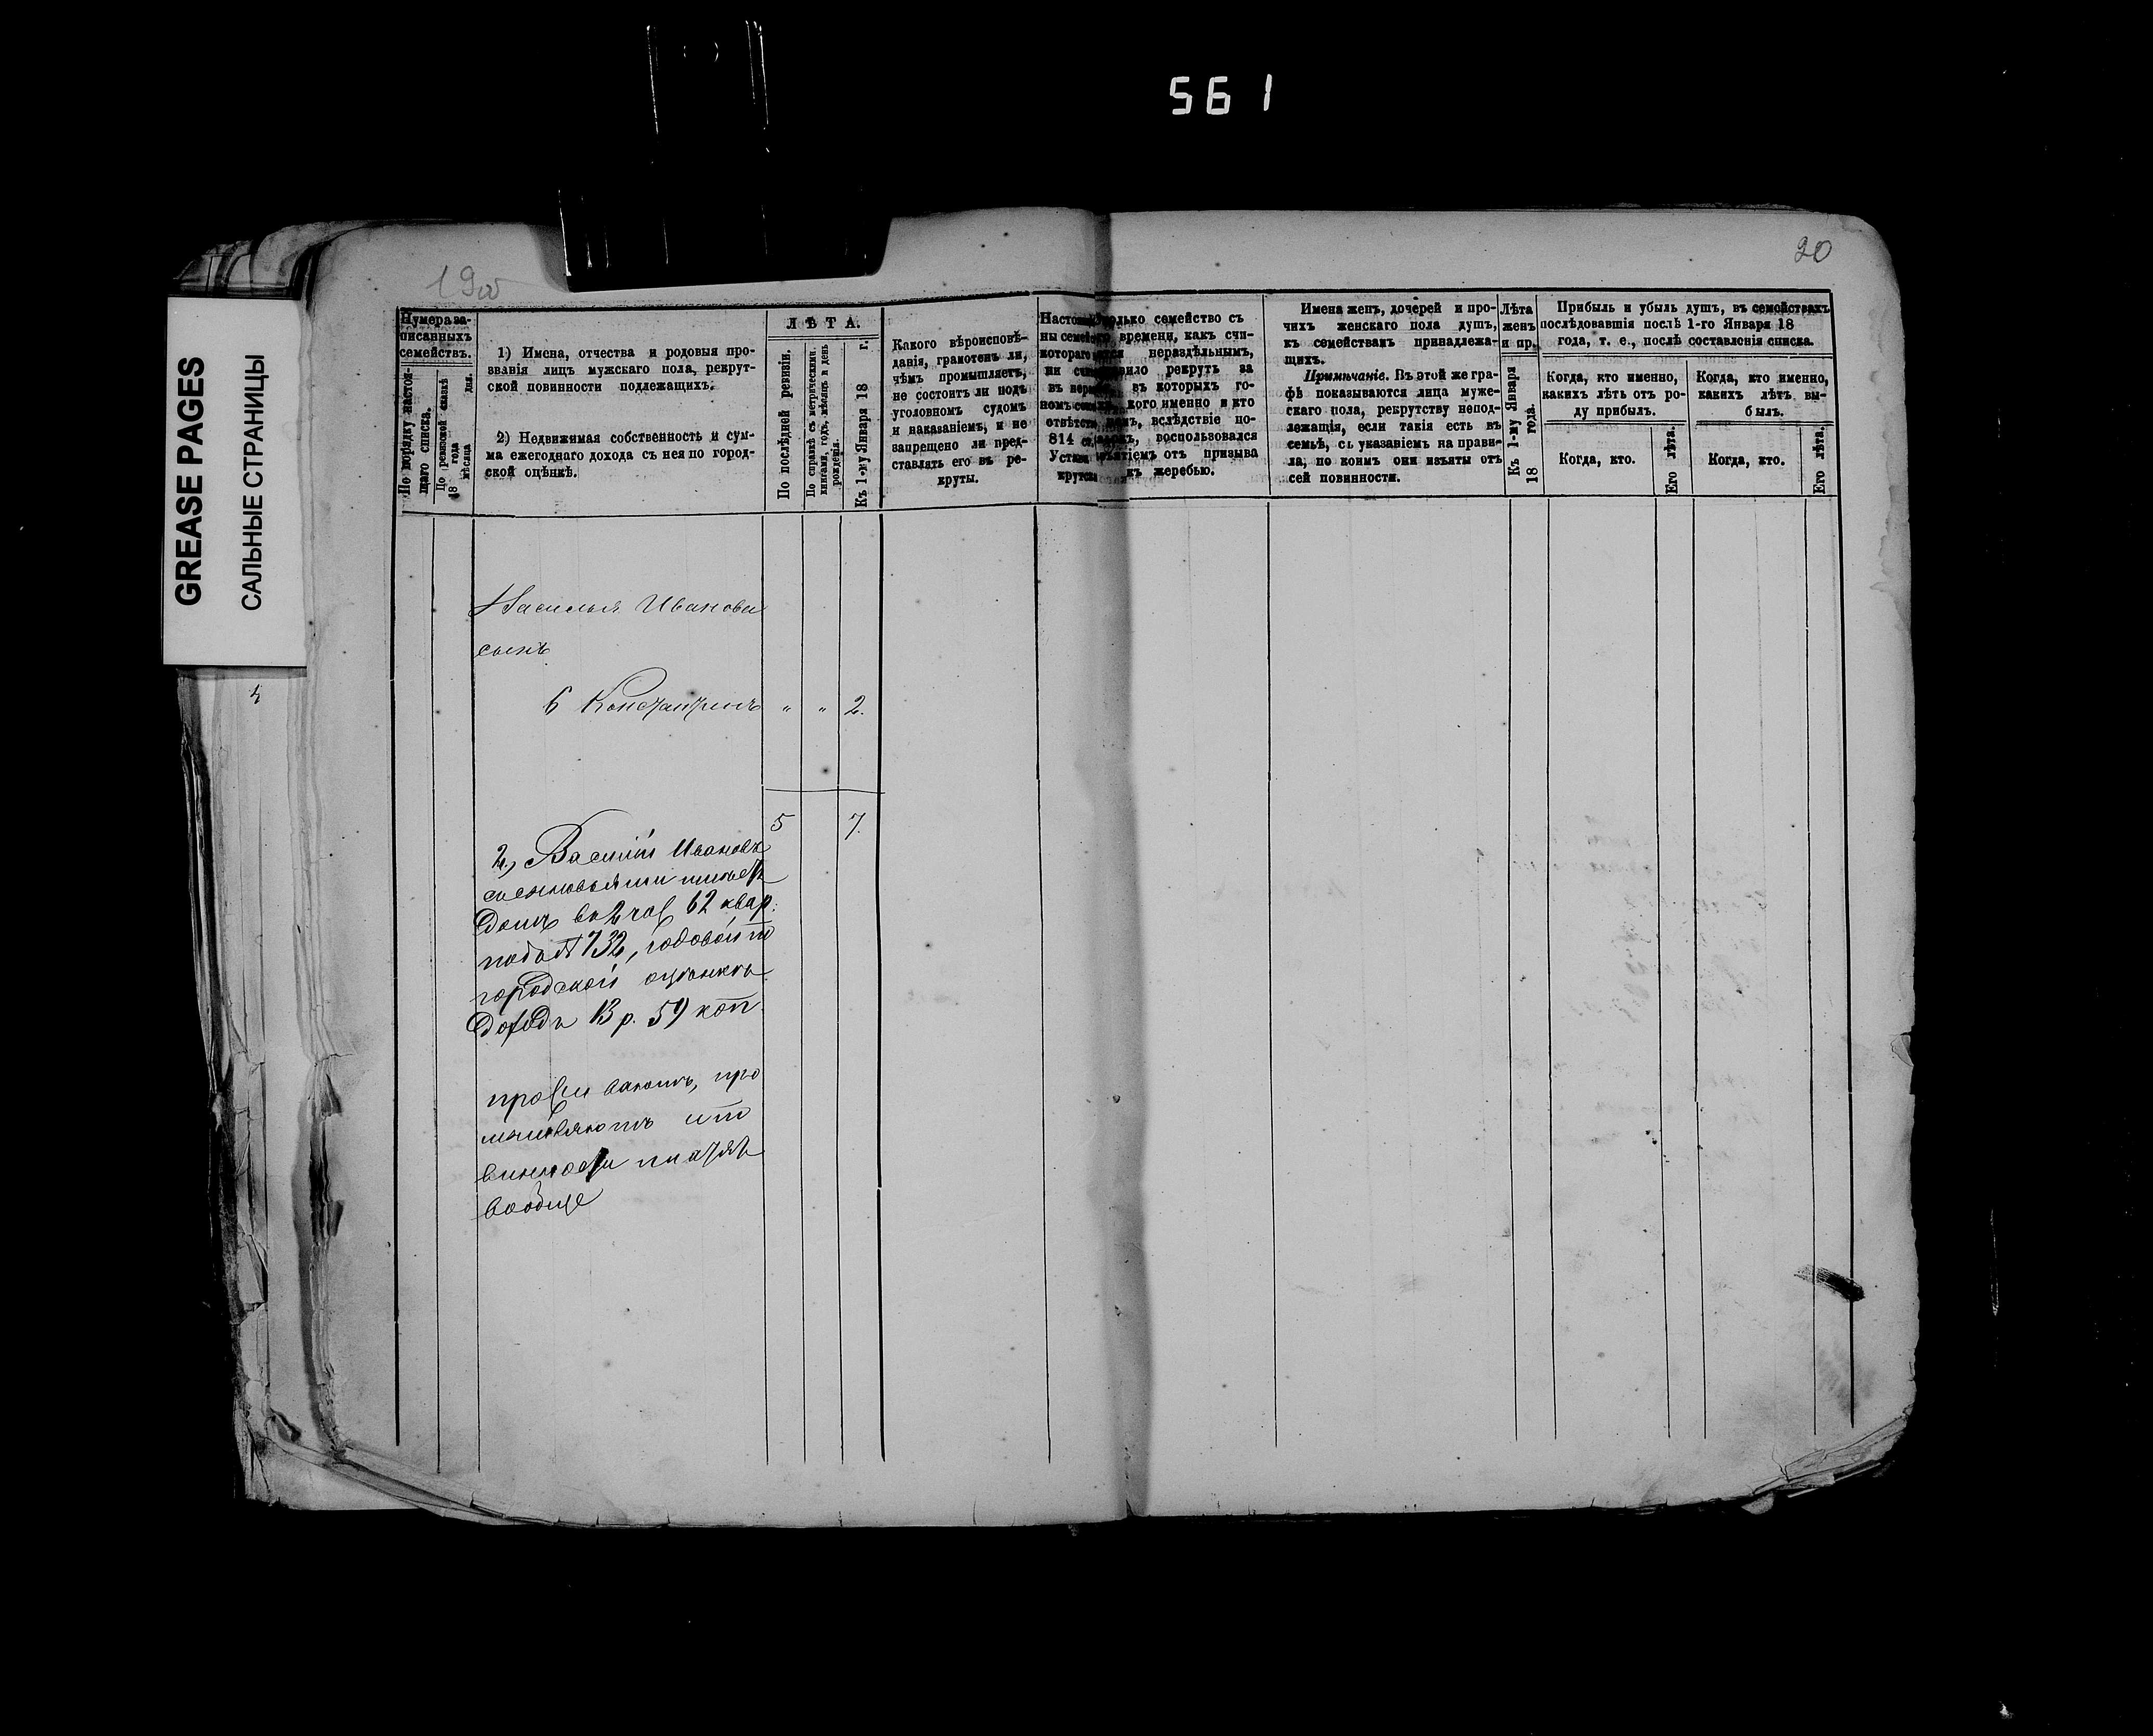 561
20
19об
GREASE PAGES
САЛЬНЫЕ СТРАНИЦЫ
Нумера за-
писанныхъ
семействъ.
По порядку настоя-
щаго списка.
По ревизской сказкѣ
18 года
мѣсяца дня.
1) Имена, отчества и родовыя про-
званія лицъ мужскаго пола, рекрут-
ской повинности подлежащихъ.
2) Недвижимая собственность и сум-
ма ежегоднаго дохода съ нея по город-
ской оцѣнкѣ.
ЛѢТА.
По послѣдней ревизіи.
По справкѣ съ метрическими
книгами, годъ, мѣсяцъ и день
рожденія.
Къ 1-му Января 18 г.
Какого вѣроисповѣ-
данія, грамотенъ ли,
чѣмъ промышляетъ,
не состоитъ ли подъ
уголовномъ судомъ
и наказаніемъ, и не
запрещено ли пред-
ставлять его въ ре-
круты.
семейство съ
времени, какъ счи-
нераздѣльнымъ,
рекрутъ за
въ которыхъ го-
кого именно и кто
вслѣдствіе по-
814 воспользовался
отъ призыва
къ жеребью.
Имена женъ, дочерей и про-
чихъ женскаго пола душъ,
къ семействамъ принадлежа-
щихъ.
Примѣчаніе. Въ этой же гра-
фѣ показываются лица муже-
скаго пола, рекрутству непод-
лежащія, если такія есть въ
семьѣ, съ указаніемъ на прави-
ла, по коимъ они изъяты отъ
сей повинности.
Лѣта
женъ
и пр.
Къ 1-му Января
18 года.
Прибыль и убыль душъ, въ семействахъ
послѣдовавшія послѣ 1-го Января 18
года, т. е., послѣ составленія списка.
Когда, кто именно,
какихъ лѣтъ отъ ро-
ду прибылъ.
Когда, кто именно,
какихъ лѣтъ вы-
былъ.
Когда, кто.
Его лѣта.
Когда, кто.
Его лѣта.
Василья Иванова
сынъ
6 Константинъ " " 2.
5 7.
2, Василій Ивановъ
съ сыновьями имѣетъ
домъ во 2 час 62 квар.
подъ № 732, годовой по
городской оцѣнкѣ
доходъ 13 р. 59 коп.
проживаютъ, про
мышляютъ и по
винности платятъ
вообще